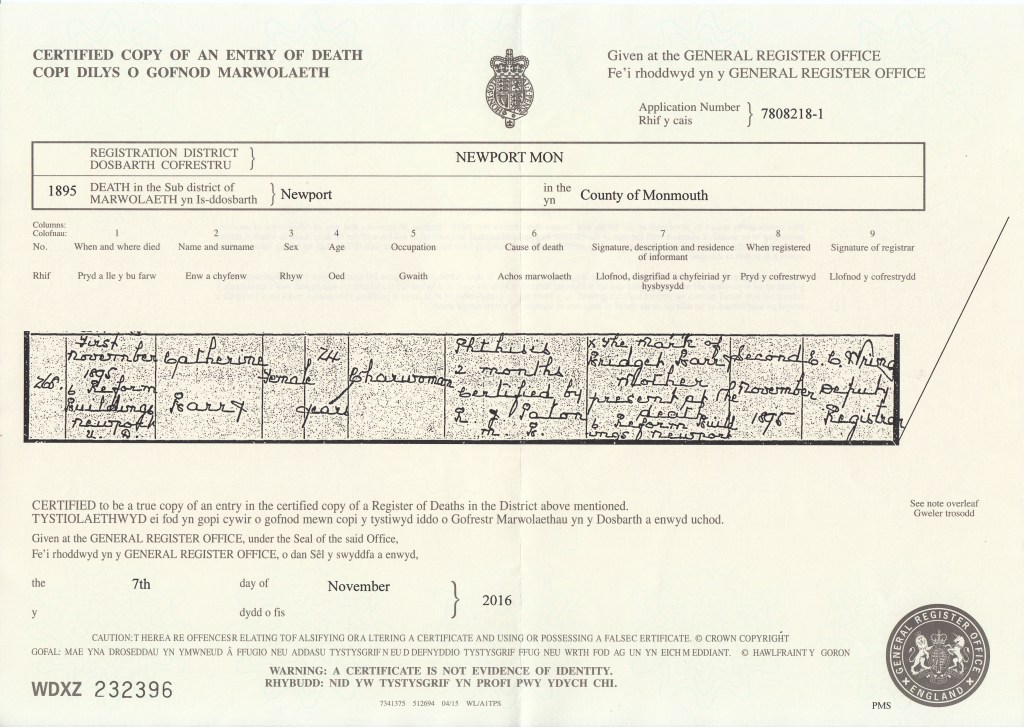 CERTIFIED COPY OF AN ENTRY OF DEATH
COPI DILYS O GOFNOD MARWOLAETH
Given at the GENERAL REGISTER OFFICE
Fe'i rhoddwyd yn y GENERAL REGISTER OFFICE
Application Number
Rhif y cais
7808218-1
REGISTRATION DISTRICT
DOSBARTH COFRESTRU
NEWPORT MON
1895
DEATH in the Sub district of
MARWOLAETH yn Is-ddosbarth
Newport
in the
yn
County of Monmouth
Columns:
Colofnau:
1 2 3 4 5 6 7 8 9
No.
When and where died
Name and surname
Sex
Age
Occupation
Cause of death
Signature, description and residence
of informant
When registered
Signature of registrar
Rhif
Pryd a lle y bu farw
Enw a chyfenw
Rhyw
Oed
Gwaith
Achos marwolaeth
Llofnod, disgrifiad a chyfeiriad yr
hysbysydd
Pryd y cofrestrwyd
Llofnod y cofrestrydd
268
First
November
1895
6 Reform
Buildings
Newport
U. D.
Catherine
Barry
Female
24
years
Charwoman
Phthisis
2 months
Certified by
Paton
X The Mark of
Bridget Barry
Mother
present at the
death
6 Reform Build
ings Newport
Second
of November
1895
Deputy
Registrar
CERTIFIED to be a true copy of an entry in the certified copy of a Register of Deaths in the District above mentioned.
TYSTIOLAETHWYD ei fod yn gopi cywir o gofnod mewn copi y tystiwyd iddo o Gofrestr Marwolaethau yn y Dosbarth a enwyd uchod.
See note overleaf
Gweler trosodd
Given at the GENERAL REGISTER OFFICE, under the Seal of the said Office,
Fe'i rhoddwyd yn y GENERAL REGISTER OFFICE, o dan Sêl y swyddfa a enwyd,
the 7th day of November
2016
y dydd o fis
CAUTION: T HEREA RE OFFENCESR ELATING TOF ALSIFYING ORA LTERING A CERTIFICATE AND USING OR POSSESSING A FALSEC ERTIFICATE. © CROWN COPYRIGHT
GOFAL: MAE YNA DROSEDDAU YN YMWNEUD Â FFUGIO NEU ADDASU TYSTYSGRIF N EU D DEFNYDDIO TYSTYSGRIF FFUG NEU WRTH FOD AG UN YN EICH M EDDIANT. © HAWLFRAINT Y GORON
WARNING: A CERTIFICATE IS NOT EVIDENCE OF IDENTITY.
RHYBUDD: NID YW TYSTYSGRIF YN PROFI PWY YDYCH CHI.
WDXZ 232396
7341375 512694 04/15 WL/A1TPS
PMS
GENERAL REGISTER OFFICE
ENGLAND